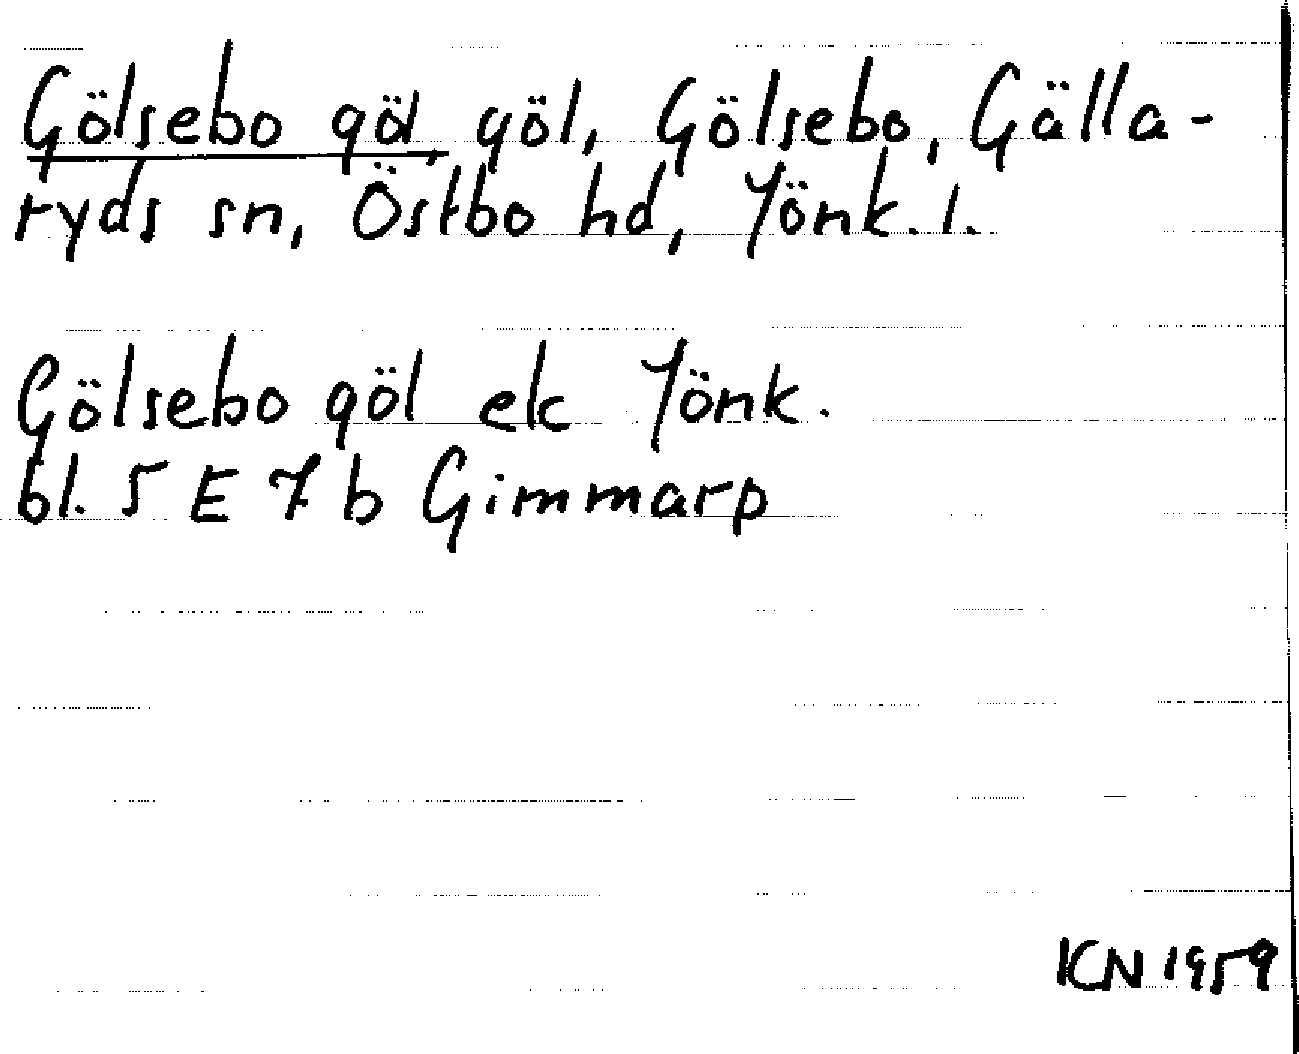 Gölsebo göl, göl, Gölsebo, Gälla-
ryds sn, Östbo hd, Jönk. l.
Gölsebo göl ek Jönk.
bl. 5 E 7 b Gimmarp
KN 1959